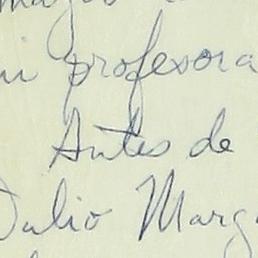 mi profesora
Antes de
Julio Marg